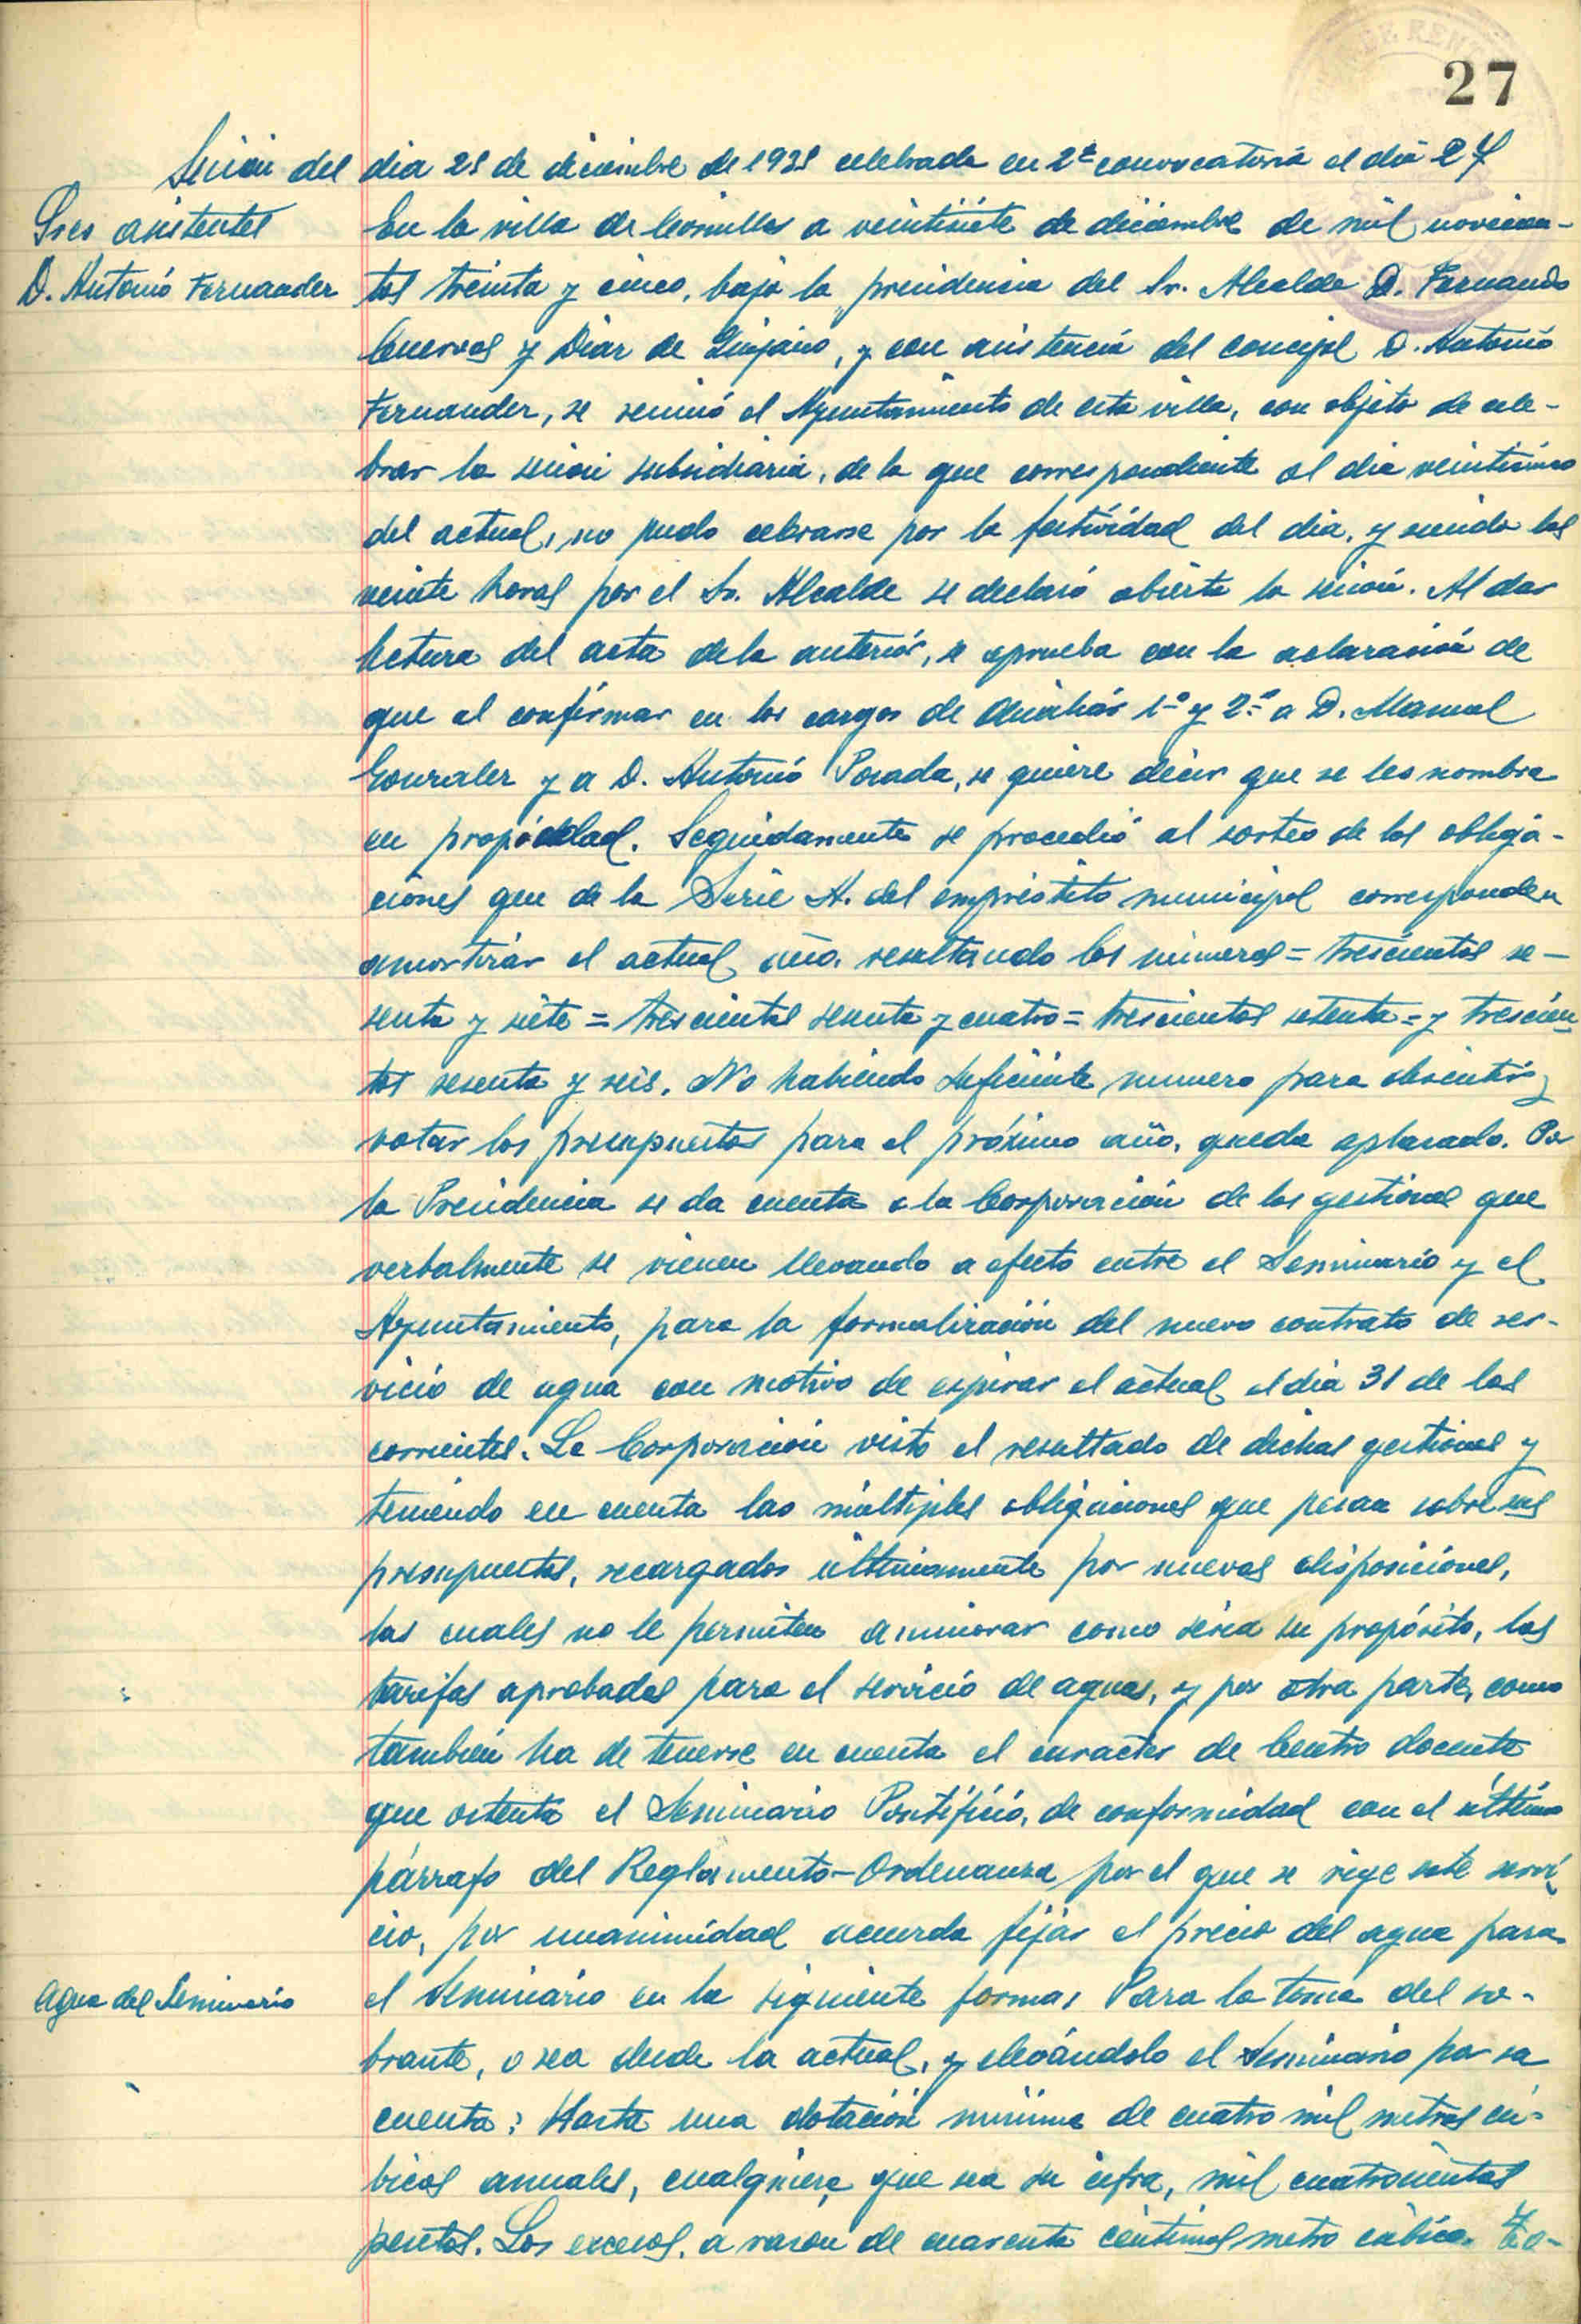 27
Sesion del dia 25 de diciembre de 1935 celebrada en 2ª convocatoria el dia 27
Sres asistentes
D. Antonio Fernandez
En la villa de Comillas a veintisiete de diciembre de mil novecien-
tos treinta y cinco, bajo la presidencia del Sr. Alcalde D. Fernando
Cuevas y Diaz de Quijano, y con asistencia del concejal D. Antonio
Fernandez, se reunió el Ayuntamiento de esta villa, con objeto de cele-
brar la sesion subsidiaria, de la que correspondiente al dia veinticinco
del actual, no pudo celebrarse por la festividad del dia, y siendo las
veinte horas por el Sr. Alcalde se declaró abierta la sesion. Al dar
lectura del acta de la anterior, se aprueba con la aclaración de
que al confirmar en los cargos de Auxiliar 1º y 2º a D. Manuel
Gonzalez y a D. Antonio Posada, se quiere decir que se les nombra
en propiedad. Seguidamente se procedió al sorteo de las obliga-
ciones que de la Serie A. del empréstito municipal corresponden
amortizar el actual año, resultando los números = trescientos se-
senta y siete = trescientos sesenta y cuatro = trescientos setenta = y trescien
tos sesenta y seis. No habiendo suficiente numero para discutir y
votar los presupuestos para el próximo año, queda aplazado. Por
la Presidencia se da cuenta a la Corporación de las gestiones que
verbalmente se vienen llevando a efecto entre el Seminario y el
Ayuntamiento, para la formalización del nuevo contrato de ser-
vicio de agua con motivo de expirar el actual el dia 31 de los
corrientes. La Corporación visto el resultado de dichas gestiones y
teniendo en cuenta las múltiples obligaciones que pesan sobre sus
presupuestos, recargados últimamente por nuevas disposiciones,
las cuales no le permiten aminorar como sería su propósito, las
tarifas aprobadas para el servicio de aguas, y por otra parte, como
también ha de tenerse en cuenta el caracter de Centro docente
que ostenta el Seminario Pontificio, de conformidad con el último
párrafo del Reglamento-Ordenanza por el que se rige este servi
cio, por unanimidad acuerda fijar el precio del agua para
Agua del Seminario
el Seminario en la siguiente forma: Para la toma del so-
brante, o sea desde la actual, y elevándolo el Seminario por su
cuenta: Hasta una dotación minima de cuatro mil metros cú-
bicos anuales, cualquiera que sea su cifra, mil cuatrocientas
pesetas. Los excesos, a razon de cuarenta céntimos metro cúbico.